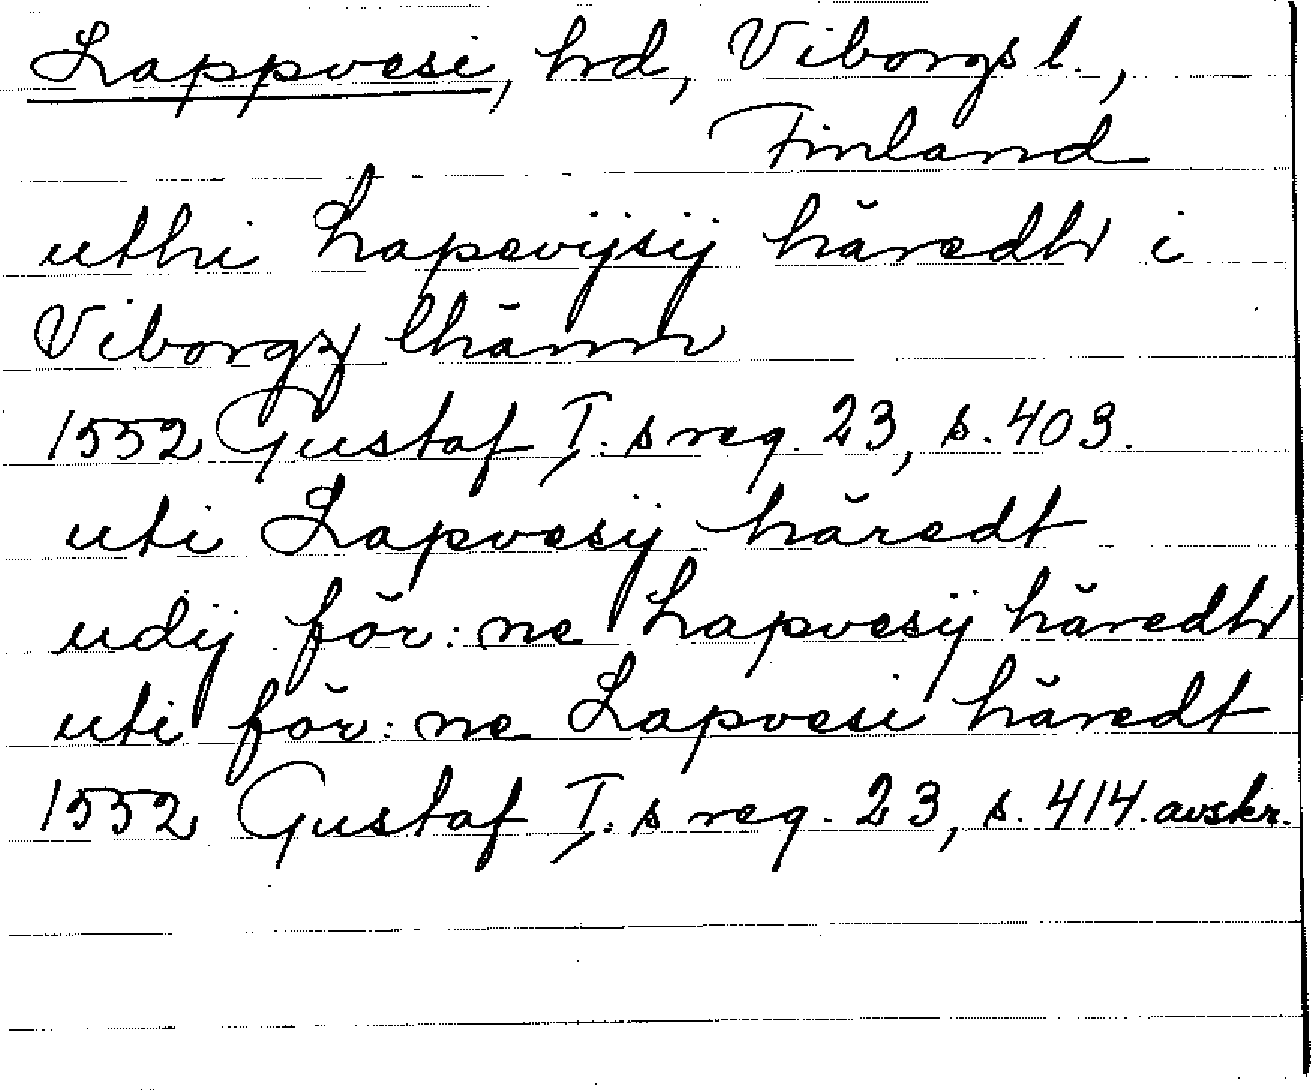 Lappvesi, hrd, Viborgs l.,
Finland
uthi Lapevijsij häredtt i
Viborgz lhänn
1552 Gustaf I.s reg. 23, s. 403.
uti Lapvesij häredt
udij för:ne Lapvesij häredtt
uti för:ne Lapvesi häredt
1552 Gustaf I.s reg. 23, s. 414. avskr.